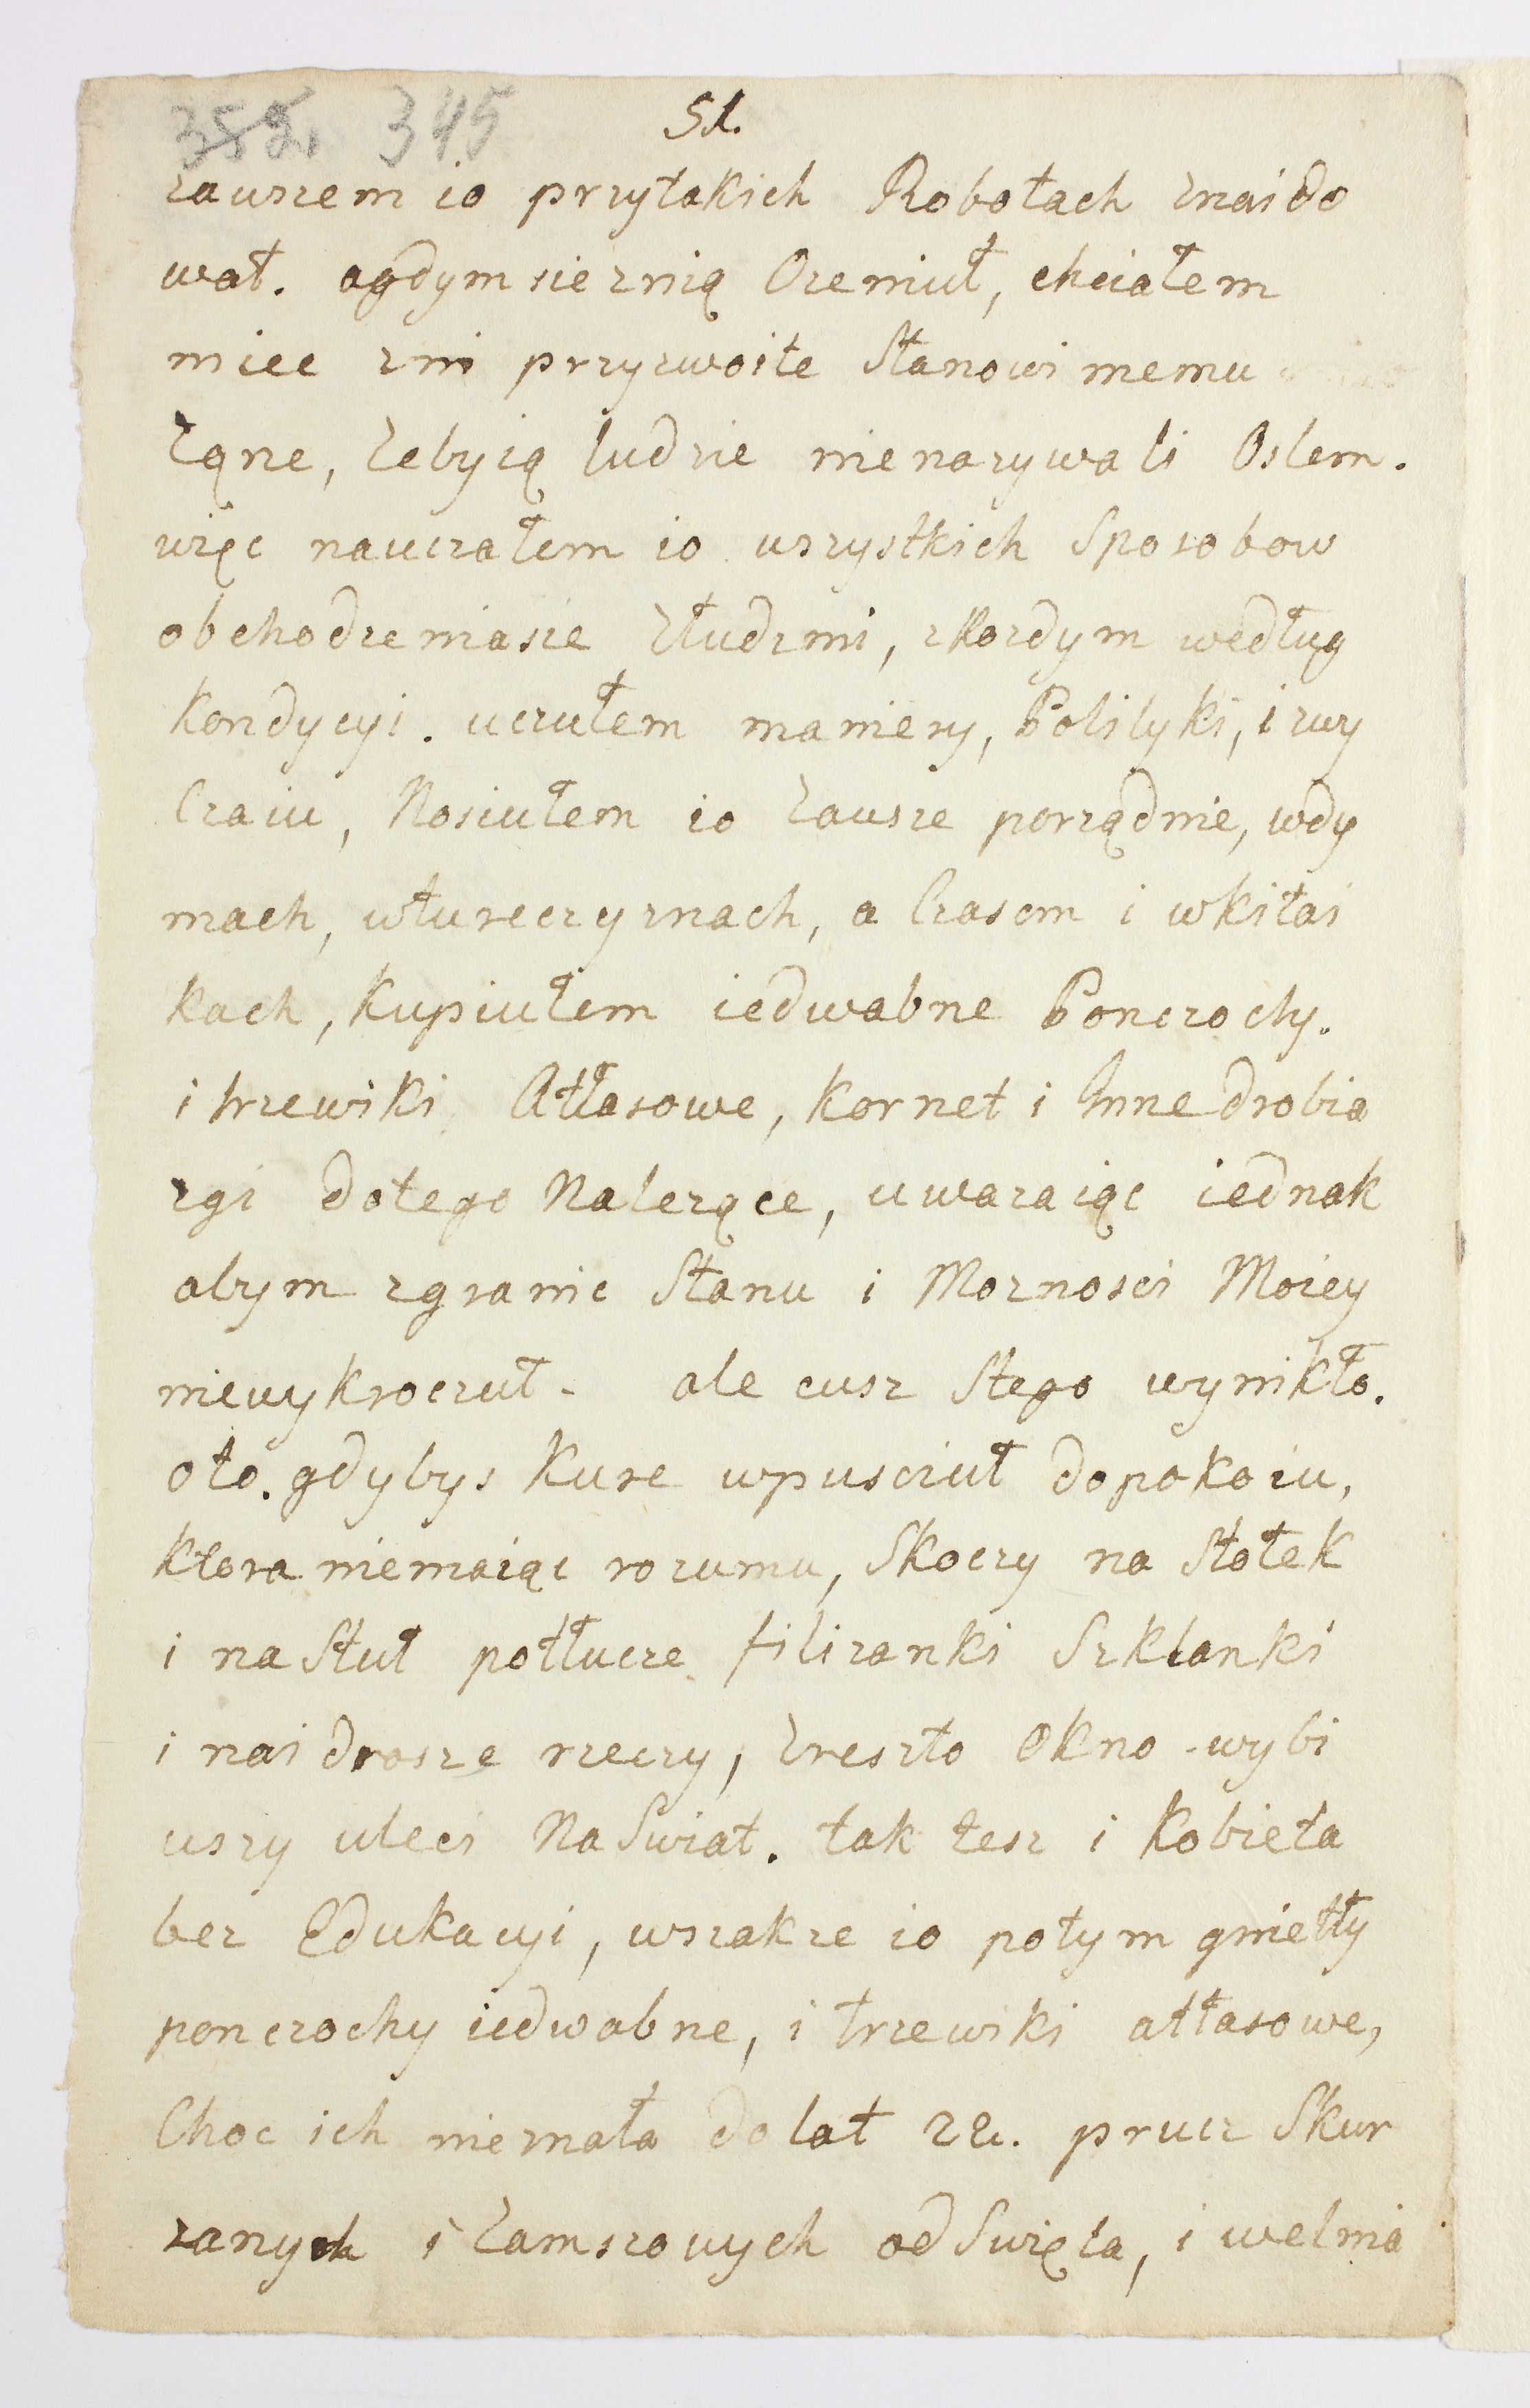 352 345 51.
zawszem io przytakich Robotach Znaido
wał. agdym sie znią Ozeniuł, chciałem
miec zni przyzwoite Stanowi memu
Zqne, Zebyią ludzie nienazywali Oslem.
więc nauczałem io wszystkich Sposobow
obchodzeniasie Złudzmi, zkozdym według
Kondycyi. uczułem maniery, Polityki, i zwy
Czaiu, Nosiułem io Zausze porządnie, wdy
mach, wtureczyznach, a Czasem i wkitai
kach, Kupiułem iedwabne Ponczochy.
i trzewiki Atłasowe, Kornet i Inne drobia
zgi dotego Nalezące, uwazaiąc iednak
abym zgranic Stanu i Moznosci Moiey
niewykroczuł. ale cusz Stego wynikło.
oto. gdybys Kure wpusciuł dopokoiu,
ktora niemaiąc rozumu, Skoczy na Stołek
i na Stuł potłucze filizanki Szklanki
i naidrosze rzeczy, Zreszto Okno wybi
wszy uleci Na Swiat. tak tesz i Kobieta
bez Edukacyi, wszakze io potym gnietły
ponczochy iedwabne, i trzewiki atłasowe,
Choc ich niemała do lat 22. prucz Skur
zanych i Zamszowych od Swięta, i welnia